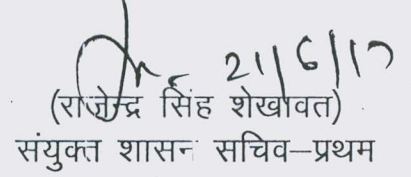 21/6/17
(राजेन्द्र सिंह शेखावत)
संयुक्त शासन सचिव–प्रथम